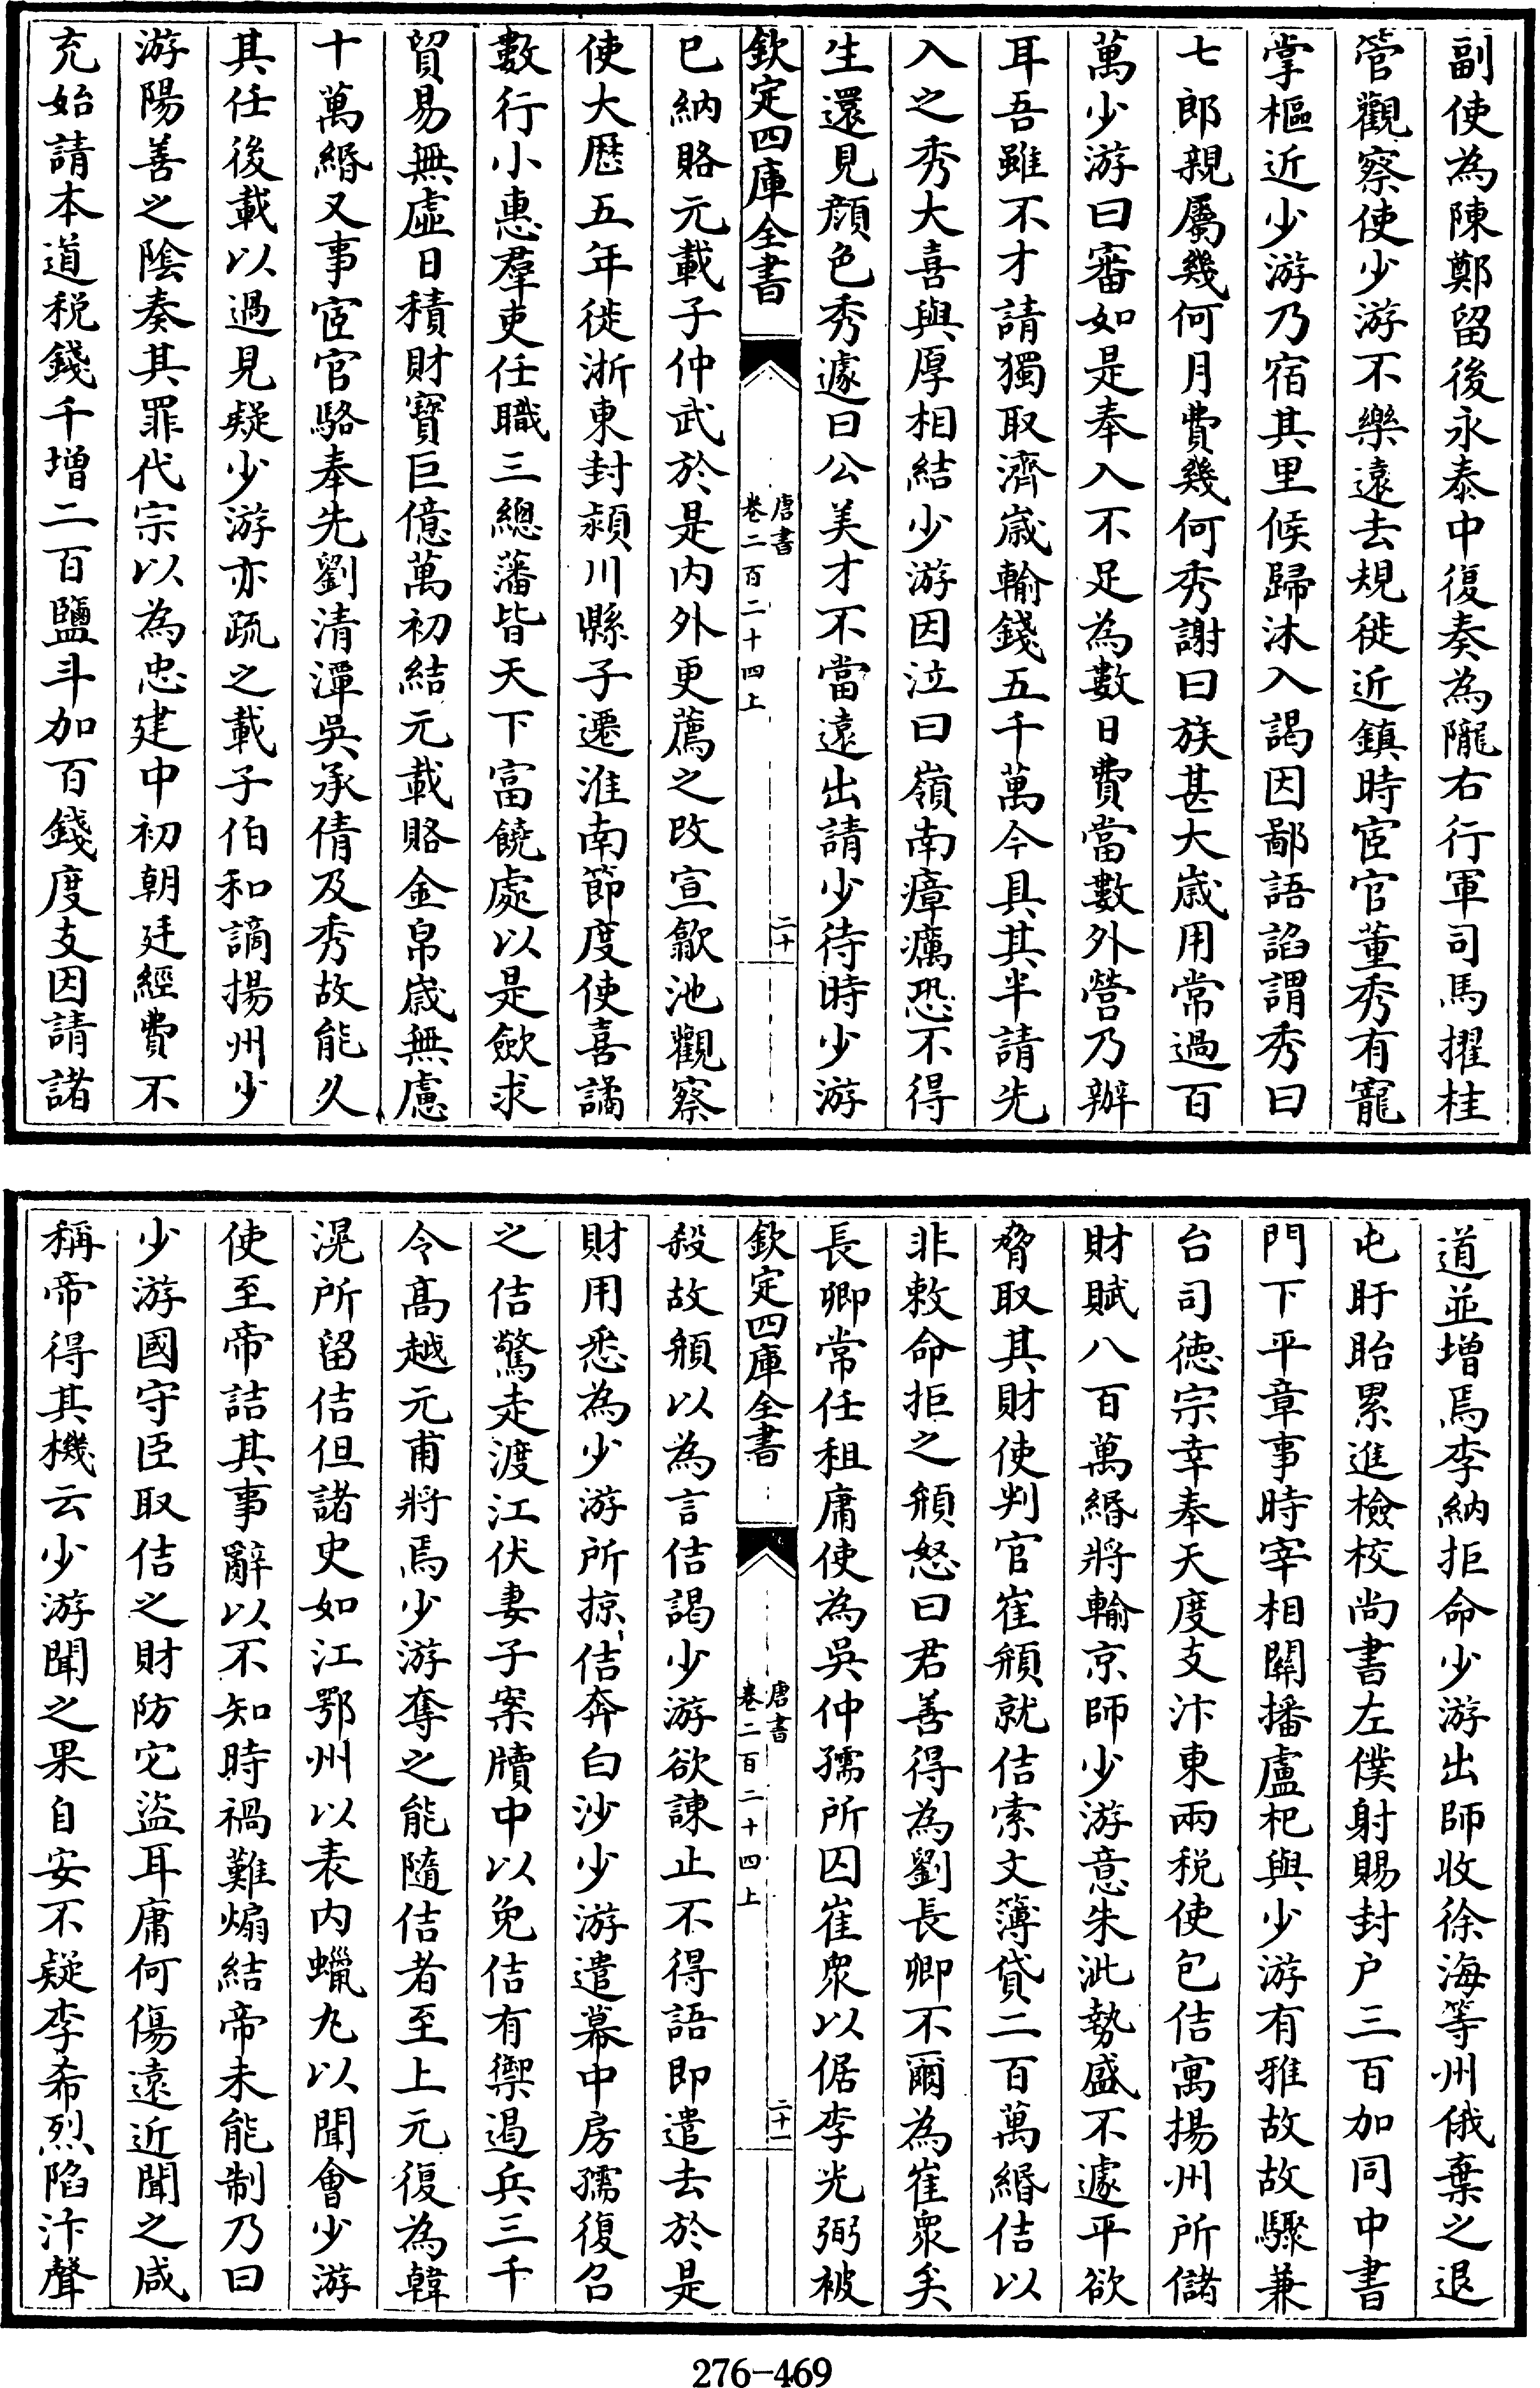 副使為陳鄭留後永泰中復奏為隴右行軍司馬擢桂
管觀察使少游不樂遠去規徙近鎮時宦官董秀有寵
掌樞近少游乃宿其里候歸沐入謁因鄙語諂謂秀曰
七郎親屬幾何月費幾何秀謝曰族甚大歲用常過百
萬少游曰審如是奉入不足為數日費當數外營乃辦
耳吾雖不才請獨取濟歲輸錢五千萬今具其半請先
入之秀大喜與厚相結少游因泣曰嶺南瘴癘恐不得
生還見顔色秀遽曰公美才不當遠出請少待時少游
欽定四庫全書
唐書
卷二百二十四上
二十
已納賂元載子仲武於是内外更薦之改宣歙池觀察
使大厯五年徙浙東封潁川縣子遷淮南節度使喜譎
數行小惠羣吏任職三總藩皆天下富饒處以是歛求
貿易無虛日積財寳巨億萬初結元載賂金帛歲無慮
十萬緡又事宦官駱奉先劉清潭吳承倩及秀故能久
其任後載以過見疑少游亦疏之載子伯和謫揚州少
游陽善之陰奏其罪代宗以為忠建中初朝廷經費不
充始請本道税錢千增二百鹽斗加百錢度支因請諸
道並增焉李納拒命少游出師收徐海等州俄棄之退
屯盱眙累進檢校尚書左僕射賜封户三百加同中書
門下平章事時宰相關播盧杞與少游有雅故故驟兼
台司徳宗幸奉天度支汴東兩税使包佶寓揚州所儲
財賦八百萬緡將輸京師少游意朱泚勢盛不遽平欲
脅取其財使判官崔頯就佶索文簿貸二百萬緡佶以
非敕命拒之頯怒曰君善得為劉長卿不爾為崔衆矣
長卿常任租庸使為吳仲孺所囚崔衆以倨李光弼被
欽定四庫全書
唐書
卷二百二十四上
二十一
殺故頯以為言佶謁少游欲諌止不得語即遣去於是
財用悉為少游所掠佶奔白沙少游遣幕中房孺復召
之佶驚走渡江伏妻子案牘中以免佶有禦遏兵三千
令高越元甫將焉少游奪之能隨佶者至上元復為韓
滉所留佶但諸史如江鄂州以表内蠟丸以聞會少游
使至帝詰其事辭以不知時禍難煽結帝未能制乃曰
少游國守臣取佶之財防它盜耳庸何傷遠近聞之咸
稱帝得其機云少游聞之果自安不疑李希烈陷汴聲
276-469